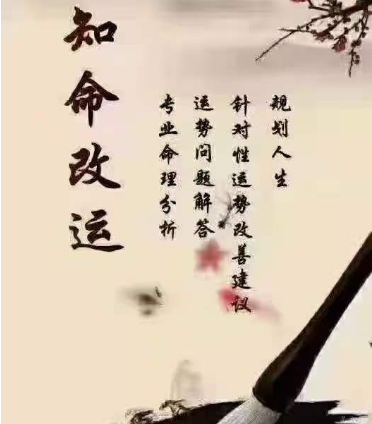 知命改运
规划人生
针对性运势改善建议
运势问题解答
专业命理分析